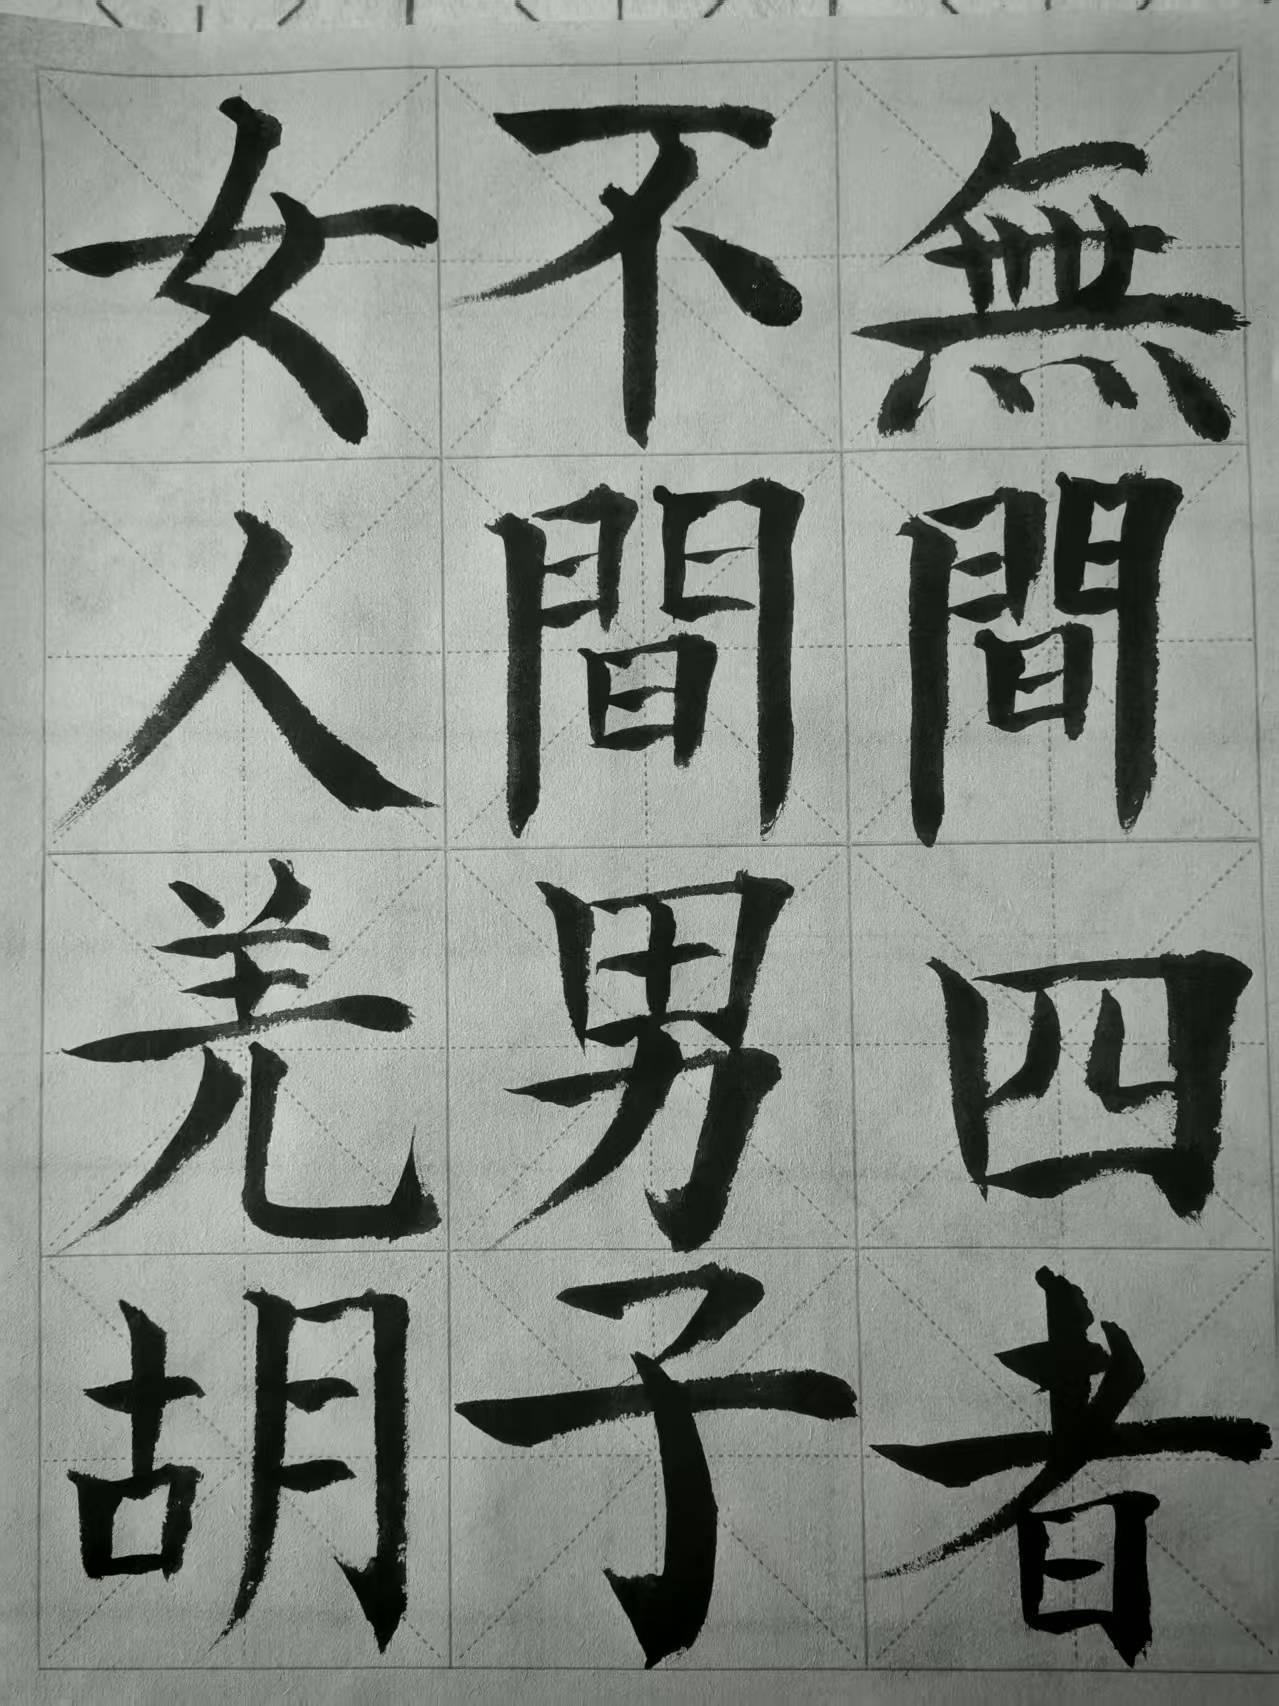 無間四者
不間男子
女人羌胡